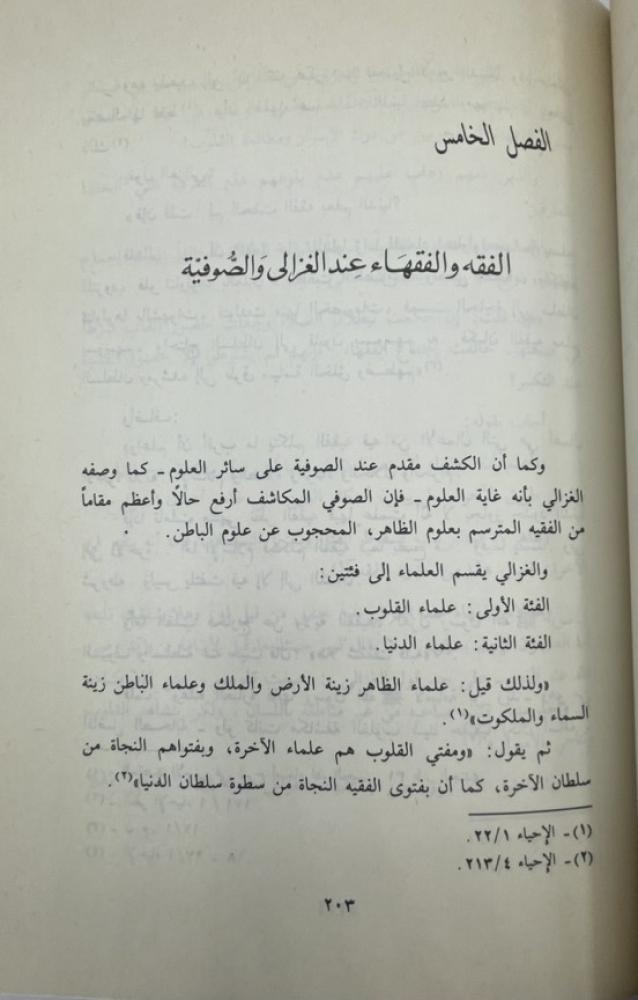 الفصل الخامس
الفقه والفقهَاء عِند الغزالى وَالصُّوفيّة
وكما أن الكشف مقدم عند الصوفية على سائر العلوم ـ كما وصفه
الغزالي بأنه غاية العلوم ـ فإن الصوفي المكاشف أرفع حالًا وأعظم مقاماً
من الفقيه المترسم بعلوم الظاهر، المحجوب عن علوم الباطن.
والغزالي يقسم العلماء إلى فئتين:
الفئة الأولى: علماء القلوب.
الفئة الثانية: علماء الدنيا.
«ولذلك قيل: علماء الظاهر زينة الأرض والملك وعلماء الباطن زينة
السماء والملكوت»(١).
ثم يقول: «ومفتي القلوب هم علماء الآخرة، وبفتواهم النجاة من
سلطان الآخرة، كما أن بفتوى الفقيه النجاة من سطوة سلطان الدنيا»(٢).
(١)ـ الإحياء ٢٢/١.
(٢)ـ الإحياء ٢١٣/٤.
٢٠٣